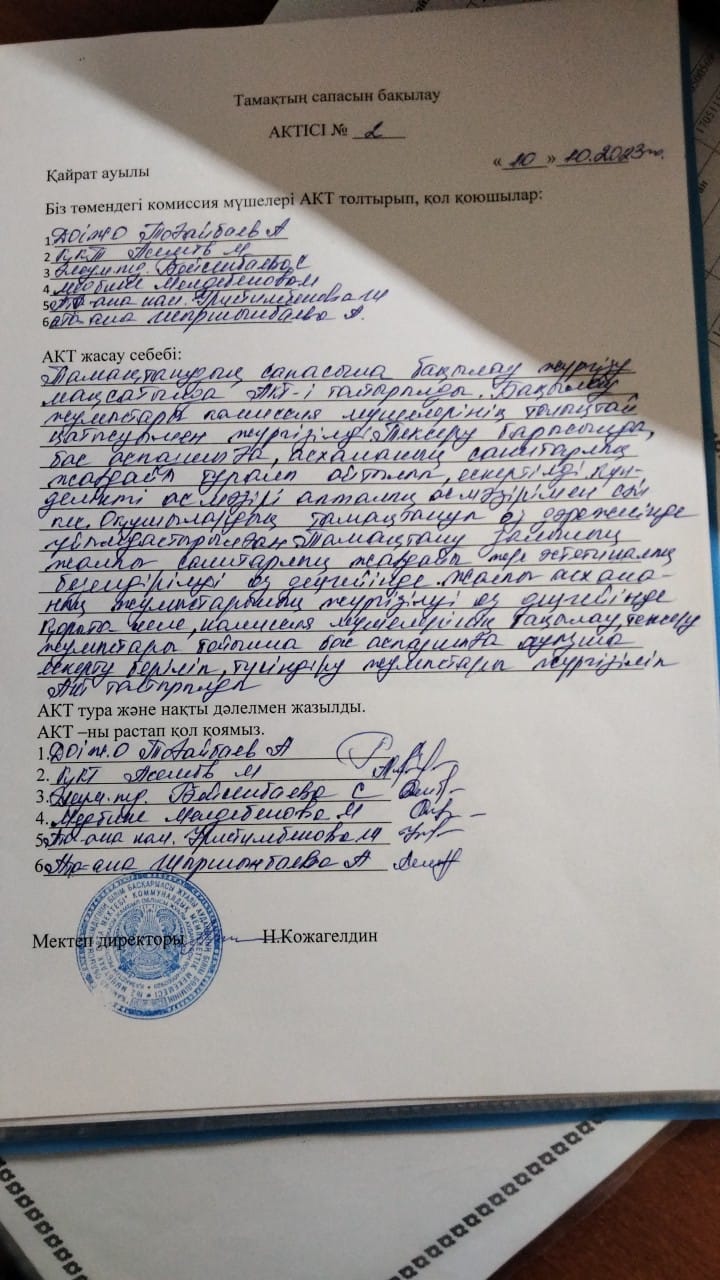 Тамақтың сапасын бақылау
АКТІСІ № 2
« 10 » 10.2023ж.
Қайрат ауылы
Біз төмендегі комиссия мүшелері АКТ толтырып, қол қоюшылар:
1 ДОІЖО Тоғайбаев А
2
3 Әлеум.пд. Бейсенбаева С
4 Медбике Молдебекова М
5 Ата-ана ком. Үристимбекова М
6 ата ана Шыршынбаева А.
АКТ жасау себебі:
Тамақтанудың сапасына бақылау жүргізу
мақсатында Акт-і толтырылды. Бақылау
жұмыстары комиссия мүшелерінің толықтай
қатысуымен жүргізілді. Тексеру барысында,
бас аспазшыға, асхананың санитарлық
жағдайы туралы айтылып, ескертілді Күн-
делікті ас мәзірі апталық ас мәзірімен сәй
кес. Оқушылардың тамақтануы өз дәрежесінде
ұйымдастырылған. Тамақтану залының
жалпы санитарлық жағдайы және эстетикалық
безендірілуі өз деңгейінде. Жалпы асхана-
ның жұмыстарының жүргізілуі өз деңгейінде
Қорыта келе, комиссия мүшелерінің бақылау, тексеру
жұмыстары бойынша бас аспазшыға ауызша
ескерту беріліп, түсіндіру жұмыстары жүргізіліп
Акт толтырылды
АКТ тура және нақты дәлелмен жазылды.
АКТ –ны растап қол қоямыз.
1. ДОІЖ.О Тоғайбаев А
2.
3. Әлеум.пд. Бейсенбаева С
4. Медбике Молдебекова М
5 Ата-ана ком. Үристимбекова М
6 Ата-ана Шыршынбаева А
Мектеп директоры Н.Кожагелдин